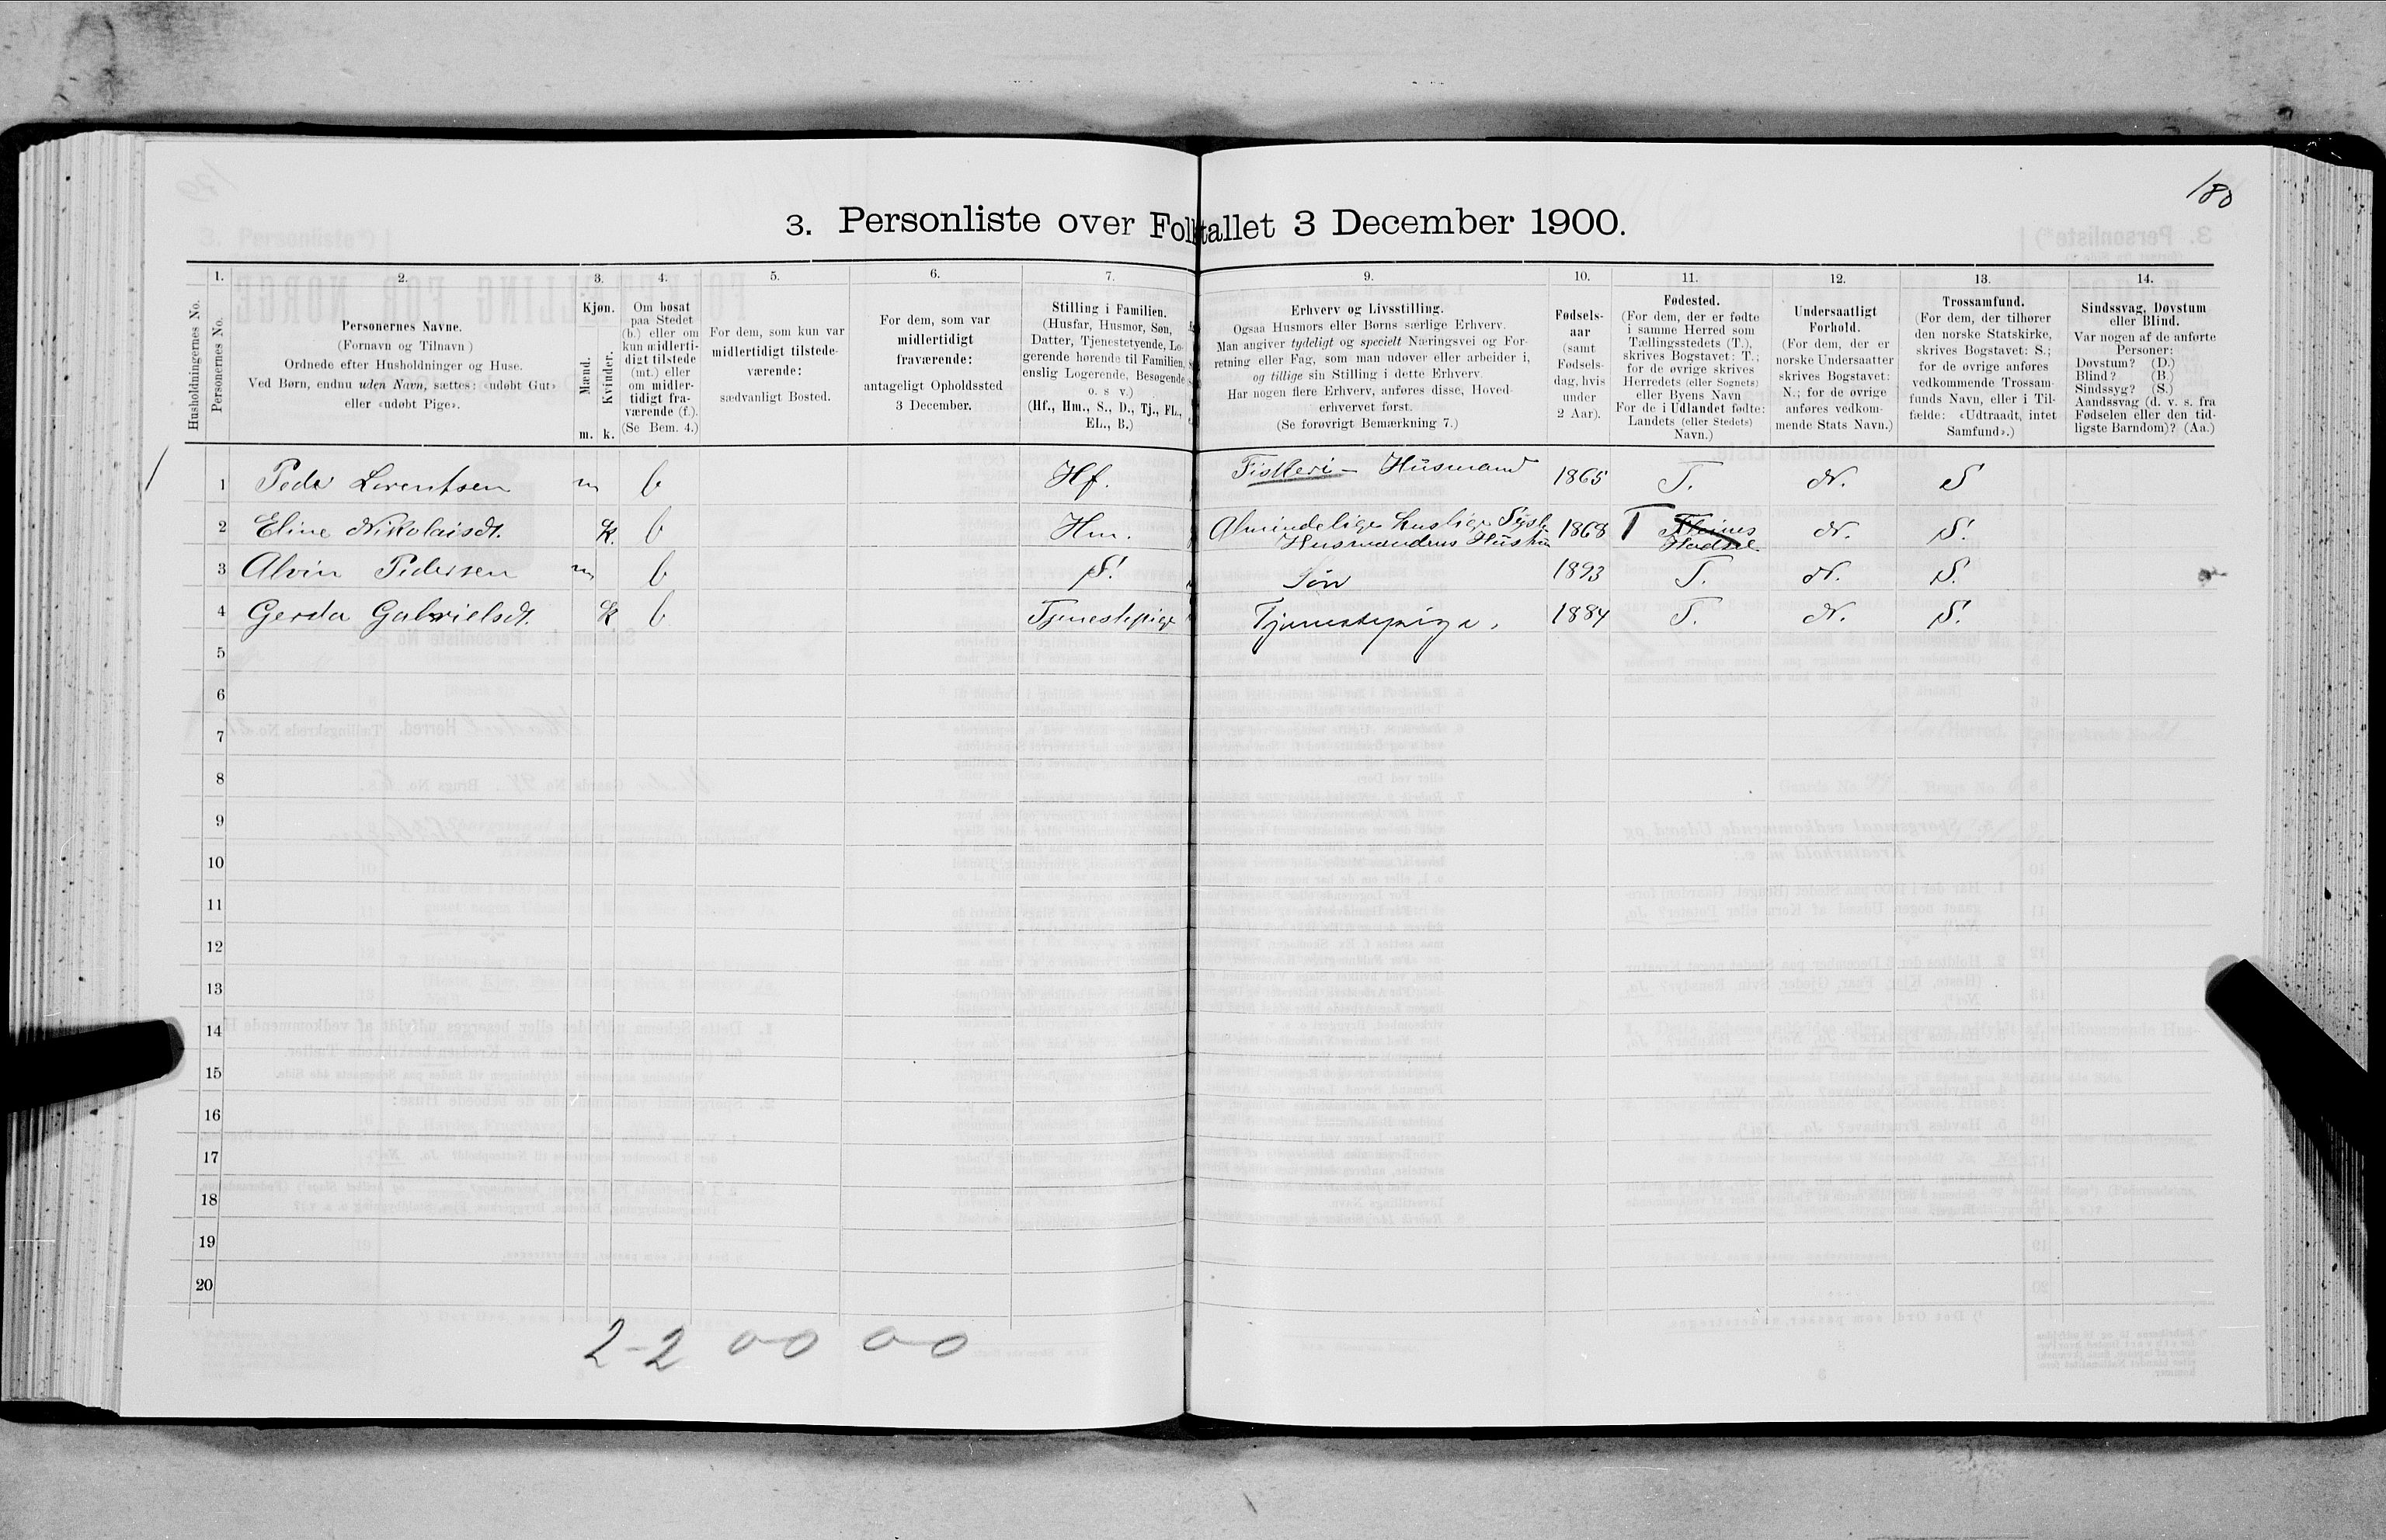 180
3. Personliste over Folketallet 3 December 1900.
Husholdningernes No.
1.
Personernes No.
2.
Personernes Navne.
(Fornavn og Tilnavn)
Ordnede efter Husholdninger og Huse.
Ved Børn, endnu uden Navn, sættes: «udøbt Gut»
eller «udøbt Pige».
3.
Kjøn.
Mænd.
Kvinder.
m. k.
4.
Om bosat
paa Stedet
(b.) eller om
kun midlerti-
digt tilstede
(mt.) eller
om midler-
tidigt fra-
værende (f.).
(Se Bem. 4.)
5.
For dem, som kun var
midlertidigt tilstede-
værende:
sædvanligt Bosted.
6.
For dem, som var
midlertidigt
fraværende:
antageligt Opholdssted
3 December.
7.
Stilling i Familien.
(Husfar, Husmor, Søn,
Datter, Tjenestetyende, Lo-
gerende hørende til Familien,
enslig Logerende, Besøgende
o. s v.)
(Hf., Hm., S., D., Tj., FL.,
EL., B.)
9.
Erhverv og Livsstilling.
Ogsaa Husmors eller Børns særlige Erhverv.
Man angiver tydeligt og specielt Næringsvei og For-
retning eller Fag, som man udøver eller arbeider i,
og tillige sin Stilling i dette Erhverv.
Har nogen flere Erhverv, anføres disse, Hoved-
erhvervet først.
(Se forøvrigt Bemærkning 7.)
10.
Fødsels-
aar
(samt
Fødsels-
dag, hvis
under
2 Aar).
11.
Fødested.
(For dem, der er fødte
i samme Herred som
Tællingsstedets (T.),
skrives Bogstavet: T.;
for de øvrige skrives
Herredets (eller Sognets)
eller Byens Navn
For de i Udlandet fødte:
Landets (eller Stedets)
Navn.)
12.
Undersaatligt
Forhold.
(For dem, der er
norske Undersaatter
skrives Bogstavet:
N.; for de øvrige
anføres vedkom-
mende Stats Navn.)
13.
Trossamfund.
(For dem, der tilhører
den norske Statskirke,
skrives Bogstavet: S.;
for de øvrige anføres
vedkommende Trossam-
funds Navn, eller i Til-
fælde: «Udtraadt, intet
Samfund».)
14.
Sindssvag, Døvstum
eller Blind.
Var nogen af de anførte
Personer:
Døvstum? (D.)
Blind? (B.)
Sindssyg? (S.)
Aandssvag (d. v. s. fra
Fødselen eller den tid-
ligste Barndom)? (Aa.)
1 1 Peder Lorentsen m b Hf. Fiskeri - Husmand 1865 T. N. S
2 Eline Nikolaisdt. k. b Hm. Almindelige huslige Sysl. Husmandens Hustru 1868 T Hadsel N. S.
3 Alvin Pedersen m b S. Søn 1893 T. N. S.
4 Gerda Gabrielsdt. k b Tjenestepige Tjenestepige. 1884 T. N. S.
5
6
7
8
9
10
11
12
13
14
15
16
17
18
19
20
2-2 0-0 0-0